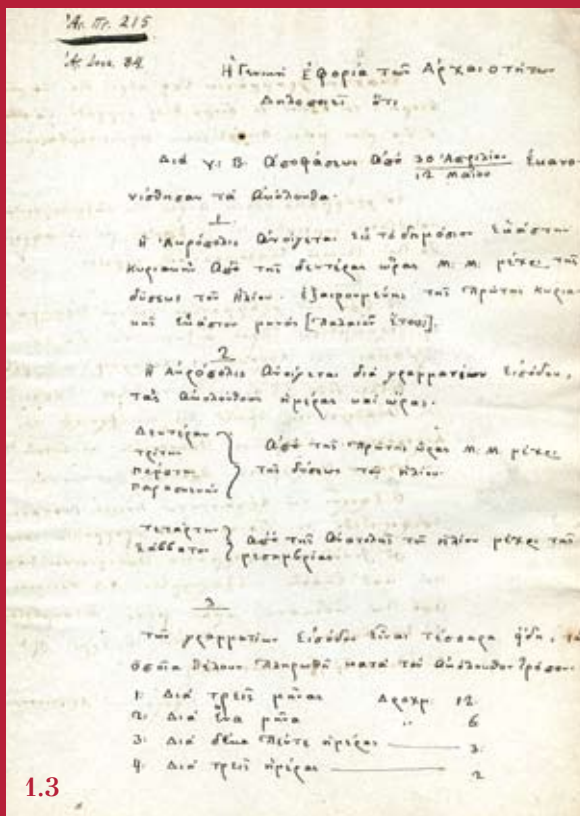 Ἀρ. Πρ. 215
Ἀρ. 84
Ἡ Γενικὴ Ἐφορία τῶν Ἀρχαιοτήτων
Δηλοποιεῖ ὅτι
Διὰ γ. Β. Ἀποφάσεως ἀπὸ 30 Ἀπριλίου / 12 Μαΐου ἐκανο-
νίσθησαν τὰ ἀκόλουθα·
1
Ἡ Ἀκρόπολις ἀνοίγεται εἰς τὸ δημόσιον ἑκάστην
Κυριακὴν ἀπὸ τῆς δευτέρας ὥρας Μ: Μ: μέχρι τῆς
δύσεως τοῦ ἡλίου. ἐξαιρουμένης τῆς πρώτης κυρια-
κῆς ἑκάστου μηνός [Παλαιοῦ ἔτους].
2
Ἡ Ἀκρόπολις ἀνοίγεται διὰ γραμματίων εἰσόδου,
τὰς ἀκολούθους ἡμέρας καὶ ὥρας.
Δευτέραν
τρίτην
πέμπτην
παρασκευὴν
ἀπὸ τῆς πρώτης ὥρας Μ: Μ: μέχρι
τῆς δύσεως τοῦ ἡλίου.
τετάρτην
Σάββατον
ἀπὸ τῆς ἀνατολῆς τοῦ ἡλίου μέχρι τῆς
μεσημβρίας.
3
τῶν γραμματίων εἰσόδου εἶναι τέσσαρα εἴδη, τὰ
ὁποῖα θέλουν πληρωθῆ κατὰ τὸν ἀκόλουθον τρόπον.
1: Διὰ τρεῖς μῆνας Δραχμ: 12.
2: Διὰ ἕνα μῆνα " 6
3: Διὰ δέκα πέντε ἡμέρας — 3.
4: Διὰ τρεῖς ἡμέρας — 2
1.3